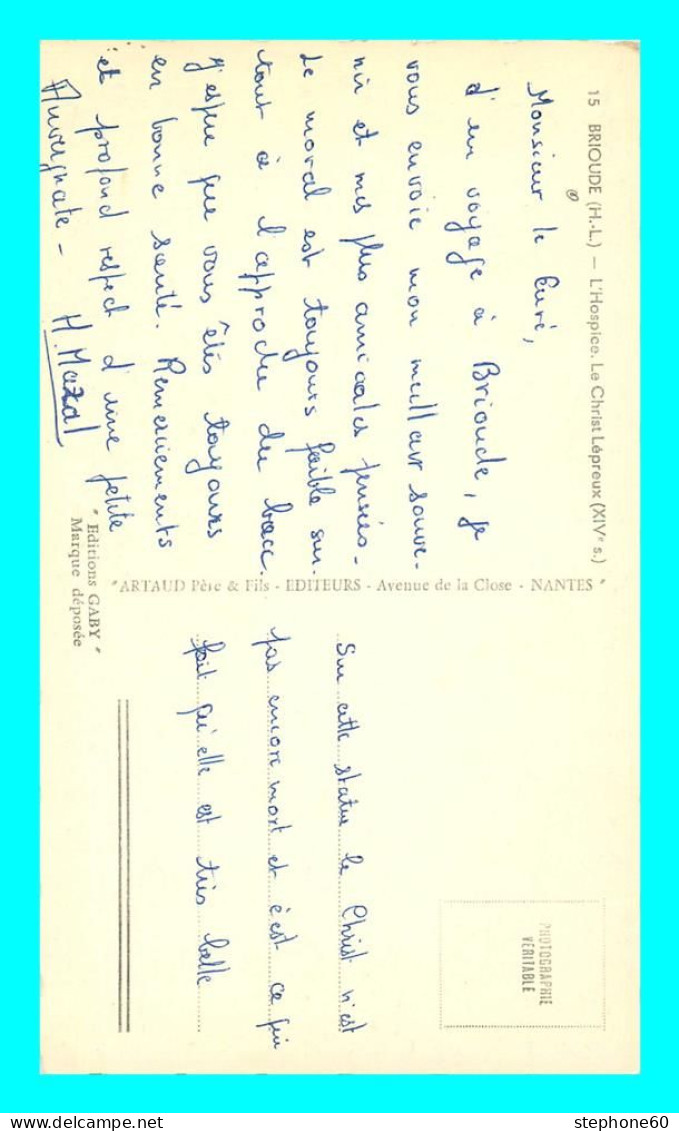 15 BRIOUDE (H.-L.) — L'Hospice. Le Christ Lépreux (XIVe s.)
Monsieur le Curé,
d'un voyage à Brioude, je
vous envoie mon meilleur souve-
nir et mes plus amicales pensées.
Le moral est toujours faible sur-
tout à l'approche du bacc.
J'espère que vous êtes toujours
en bonne santé. Remerciements
et profond respect d'une petite
Auvergnate - H. Mazal
"ARTAUD Père & Fils - EDITEURS - Avenue de la Close - NANTES"
"Editions GABY"
Marque déposée
Sur cette statue le Christ n'est
pas encore mort et c'est ce qui
fait qu'elle est très belle
PHOTOGRAPHIE
VÉRITABLE
stephone60